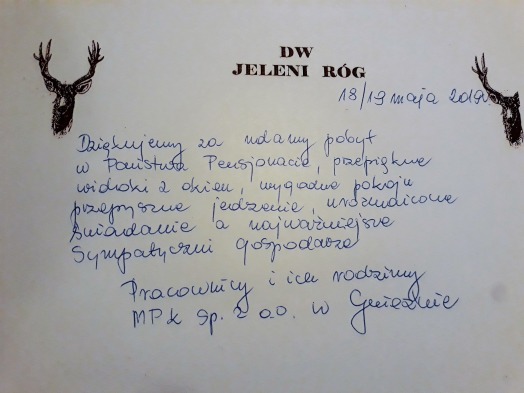 DW
JELENI RÓG
18/19 maja 2019r
Dziękujemy za udany pobyt
w Państwa Pensjonacie, przepiękne
widoki z okien, wygodne pokoje
przepyszne jedzenie, urozmaicone
śniadanie a najważniejsze
Sympatyczni gospodarze
Pracownicy i ich rodziny
MPK Sp. z o.o. w Gnieźnie